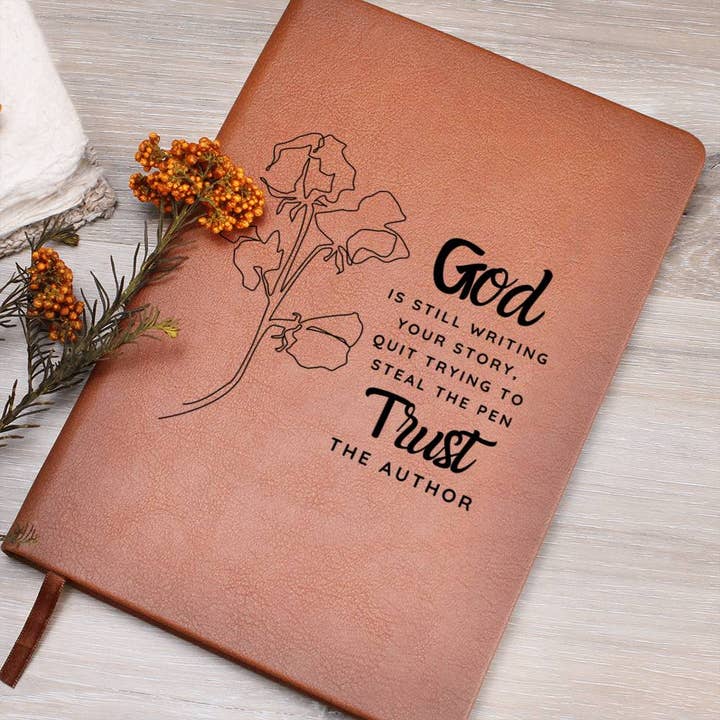 God
IS STILL WRITING
YOUR STORY,
QUIT TRYING TO
STEAL THE PEN
Trust
THE AUTHOR